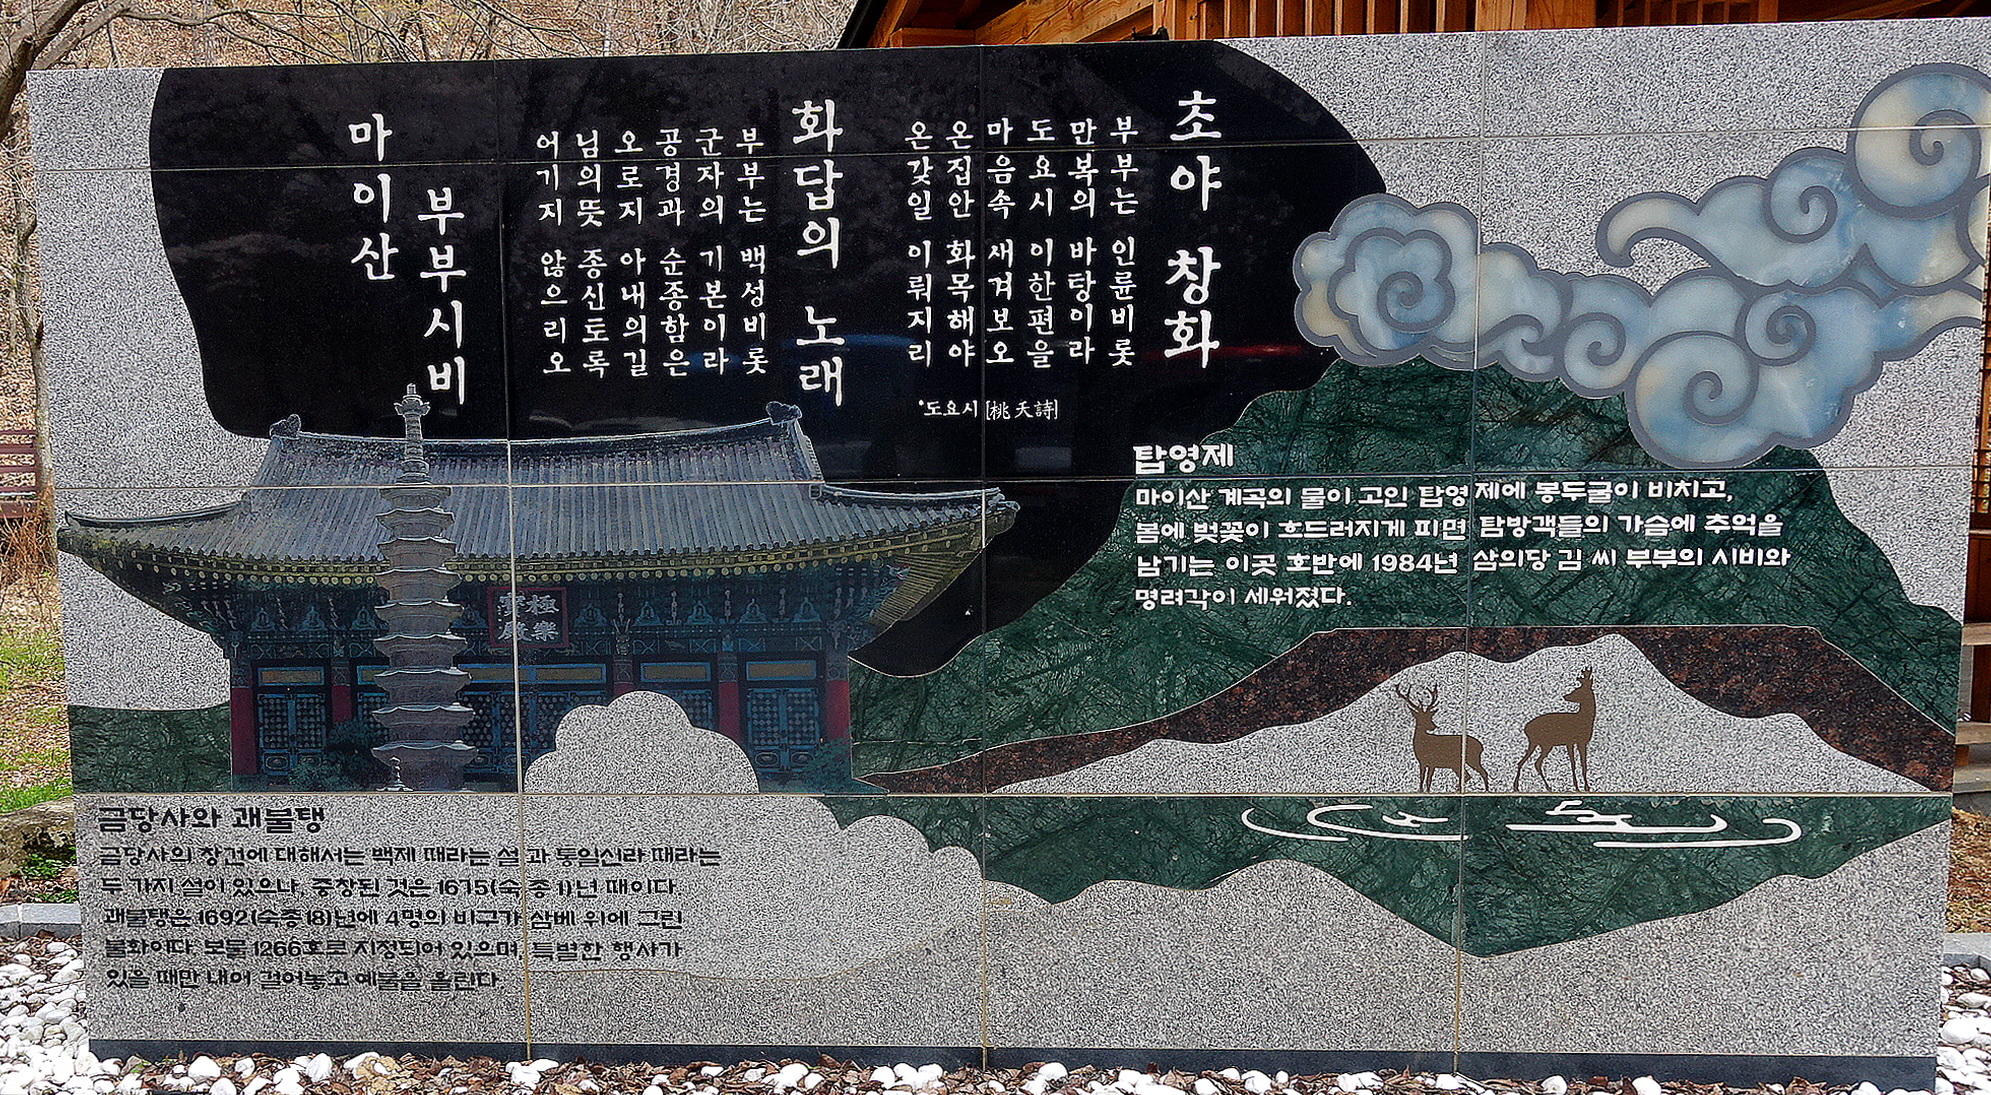 초야 창화
부부는 인륜비롯
만복의 바탕이라
도요시 이한편을
마음속 새겨보오
온집안 화목해야
온갖일 이뤄지리
*도요시 [桃夭詩]
화답의 노래
부부는 백성비롯
군자의 기본이라
공경과 순종함은
오로지 아내의길
님의뜻 종신토록
어기지 않으리오
부부시비
마이산
極樂
寶殿
탑영제
마이산 계곡의 물이 고인 탑영제에 봉두굴이 비치고,
봄에 벚꽃이 흐드러지게 피면 탐방객들의 가슴에 추억을
남기는 이곳 호반에 1984년 삼의당 김 씨 부부의 시비와
명려각이 세워졌다.
금당사와 괘불탱
금당사의 창건에 대해서는 백제 때라는 설과 통일신라 때라는
두 가지 설이 있으나, 중창된 것은 1675(숙종1)년 때이다.
괘불탱은 1692(숙종18)년에 4명의 비구가 삼베 위에 그린
불화이다. 보물 1266호로 지정되어 있으며, 특별한 행사가
있을 때만 내어 걸어놓고 예불을 올린다.